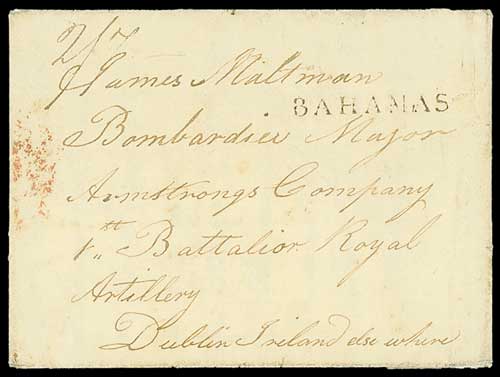 2/7
James Maltman
BAHAMAS
Bombardier Major
Armstrongs Company
1st Battalior Royal
Artillery
Dublin Ireland else where